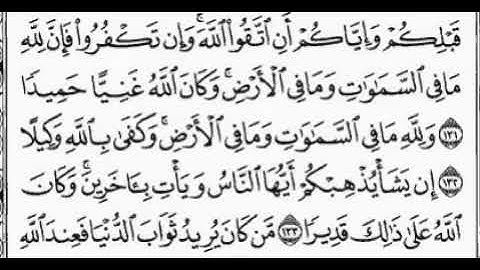 قَبْلِكُمْ وَإِيَّاكُمْ أَنِ ٱتَّقُوا۟ ٱللَّهَ ۚ وَإِن تَكْفُرُوا۟ فَإِنَّ لِلَّهِ
مَا فِى ٱلسَّمَـٰوَٰتِ وَمَا فِى ٱلْأَرْضِ ۚ وَكَانَ ٱللَّهُ غَنِيًّا حَمِيدًا
﴿١٣١﴾ وَلِلَّهِ مَا فِى ٱلسَّمَـٰوَٰتِ وَمَا فِى ٱلْأَرْضِ ۚ وَكَفَىٰ بِٱللَّهِ وَكِيلًا
﴿١٣٢﴾ إِن يَشَأْ يُذْهِبْكُمْ أَيُّهَا ٱلنَّاسُ وَيَأْتِ بِـَٔاخَرِينَ ۚ وَكَانَ
ٱللَّهُ عَلَىٰ ذَٰلِكَ قَدِيرًا ﴿١٣٣﴾ مَّن كَانَ يُرِيدُ ثَوَابَ ٱلدُّنْيَا فَعِندَ ٱللَّهِ